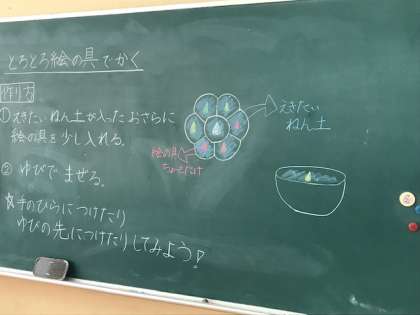 とろとろ絵の具でかく
作り方
①えきたいねん土が入ったおさらに
絵の具を少し入れる。
②ゆびでまぜる。
☆手のひらにつけたり
ゆびの先につけたりしてみよう!
えきたい
ねん土
絵の具
ちょっとだけ